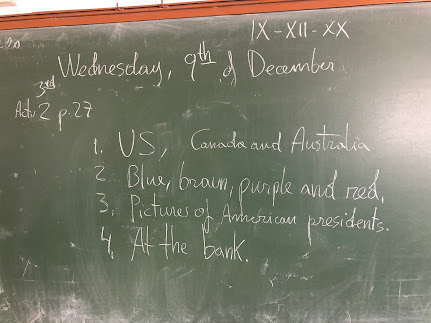 IX-XII-XX
Wednesday, 9th of December
3rd
Act. 2 p.27
1. US, Canada and Australia
2. Blue, brawn, purple and red.
3. Pictures of American presidents.
4. At the bank.